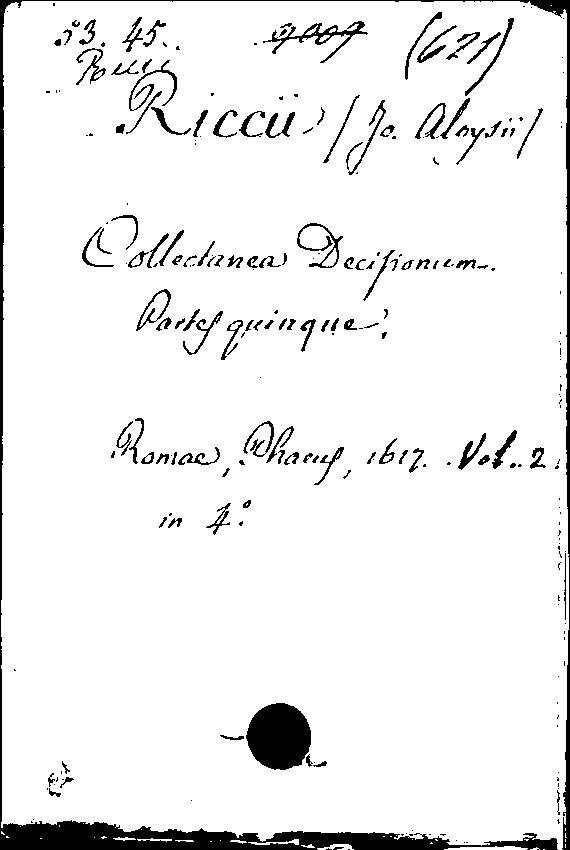 53. 45. 9009 (621)
Riccii / Jo. Aloysii /
Collectanea Decisionum.
Partes quinque.
Romae, Phaeus, 1617. Vol. 2
in 4º.